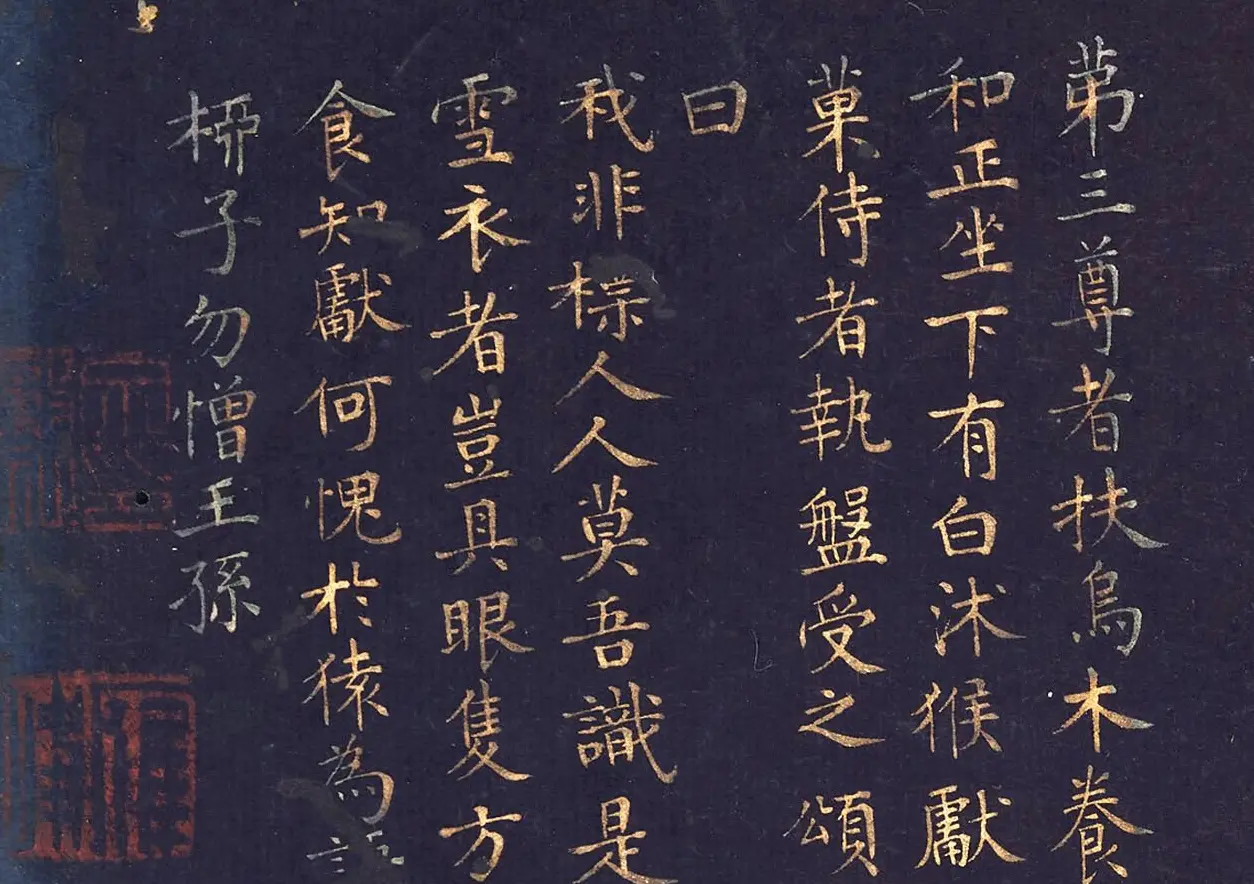 苐三尊者扶烏木養
和正坐下有白沐猴獻
菓侍者執盤受之頌
曰
我非標人人莫吾識是
雪衣者豈具眼隻方
食知獻何愧於猿為語
柳子勿憎王孫